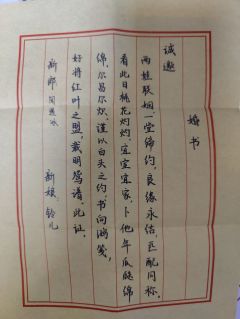 婚书
诚邀
两姓联姻,一堂缔约,良缘永结,匹配同称。
看此日桃花灼灼,宜室宜家,卜他年瓜瓞绵
绵,尔昌尔炽,谨以白头之约,书向鸿笺,
好将红叶之盟,载明鸳谱。此证。
新郎
新娘 铃儿